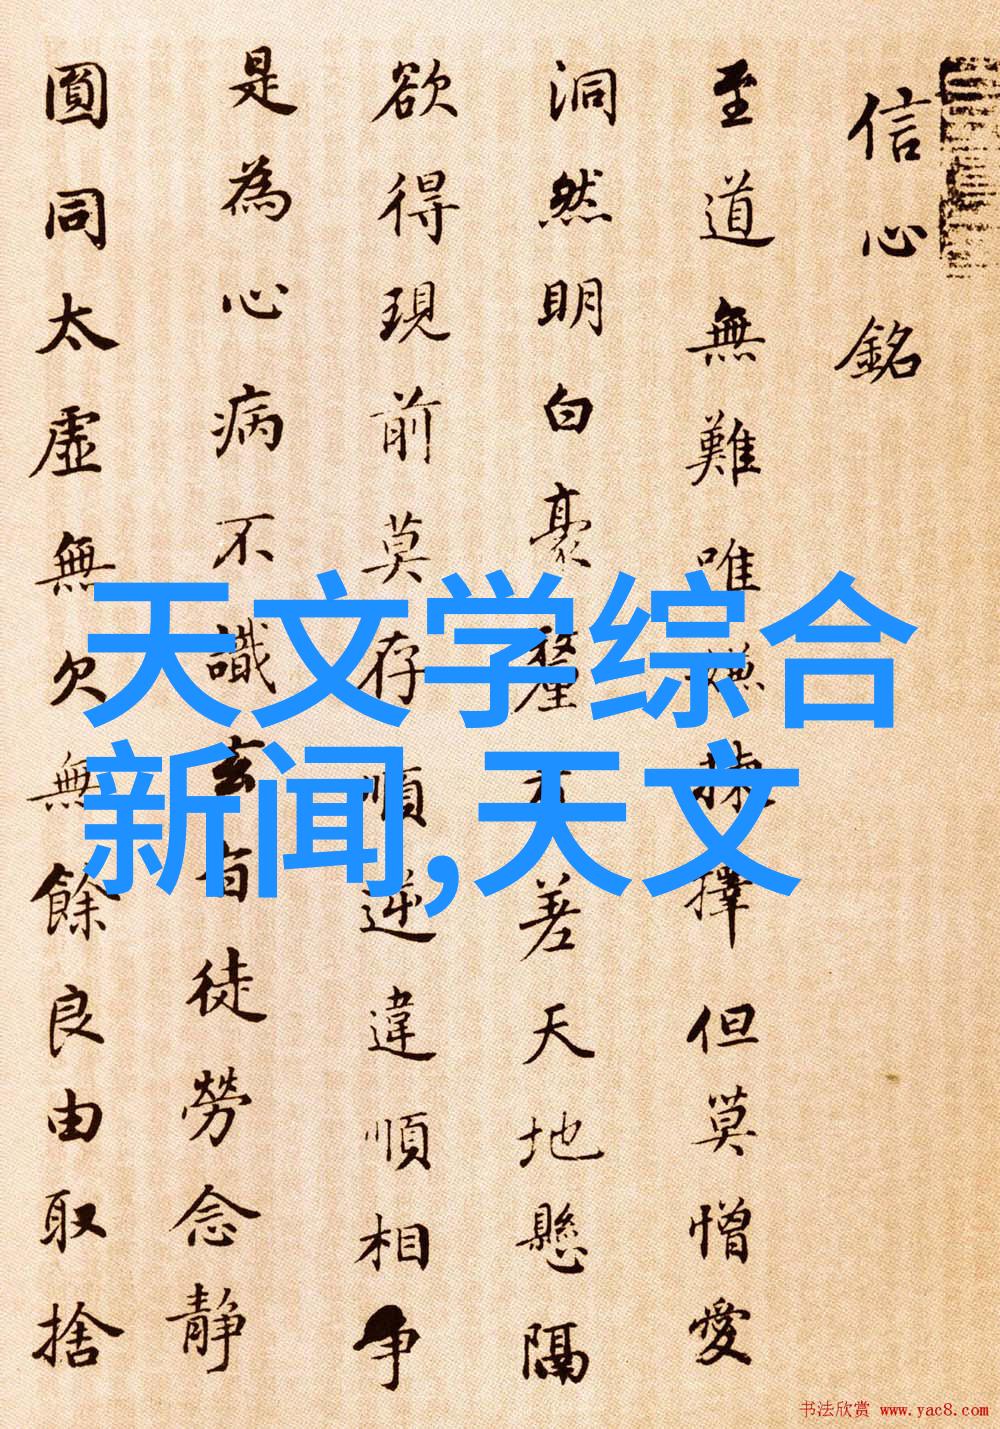 信心銘
至道無難唯嫌揀擇但莫憎愛
洞然明白豪釐有差天地懸隔
欲得現前莫存順逆違順相争
是為心病不識玄旨徒勞念静
圓同太虛無欠無餘良由取捨
天文学综合
新闻,天文
书法欣赏 www.yac8.com